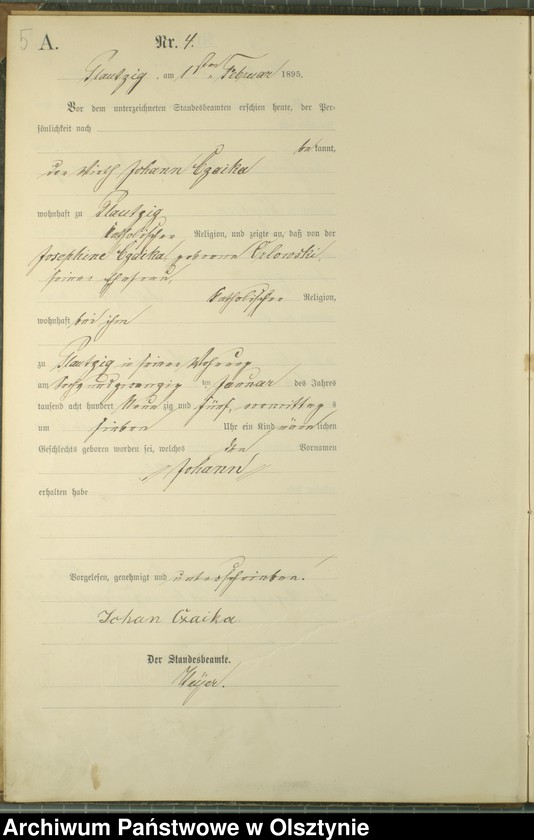 5 A. Nr. 4.
Plautzig, am 1ten Februar 1895.
Vor dem unterzeichneten Standesbeamten erschien heute, der Per-
sönlichkeit nach
bekannt,
der Wirth Johann Czaika
wohnhaft zu Plautzig
katholischer Religion, und zeigte an, daß von der
Josephine Czaika, geborene Orlowski,
seiner Ehefrau,
katholischer Religion,
wohnhaft bei ihm
zu Plautzig in seiner Wohnung
am sechs und zwanzig ten Januar des Jahres
tausend acht hundert Neun zig und fünf, vormittags
um sieben Uhr ein Kind männlichen
Geschlechts geboren worden sei, welches den Vornamen
"Johann"
erhalten habe
Vorgelesen, genehmigt und unterschrieben.
Johan Czaika
Der Standesbeamte.
Archiwum Państwowe w Olsztynie